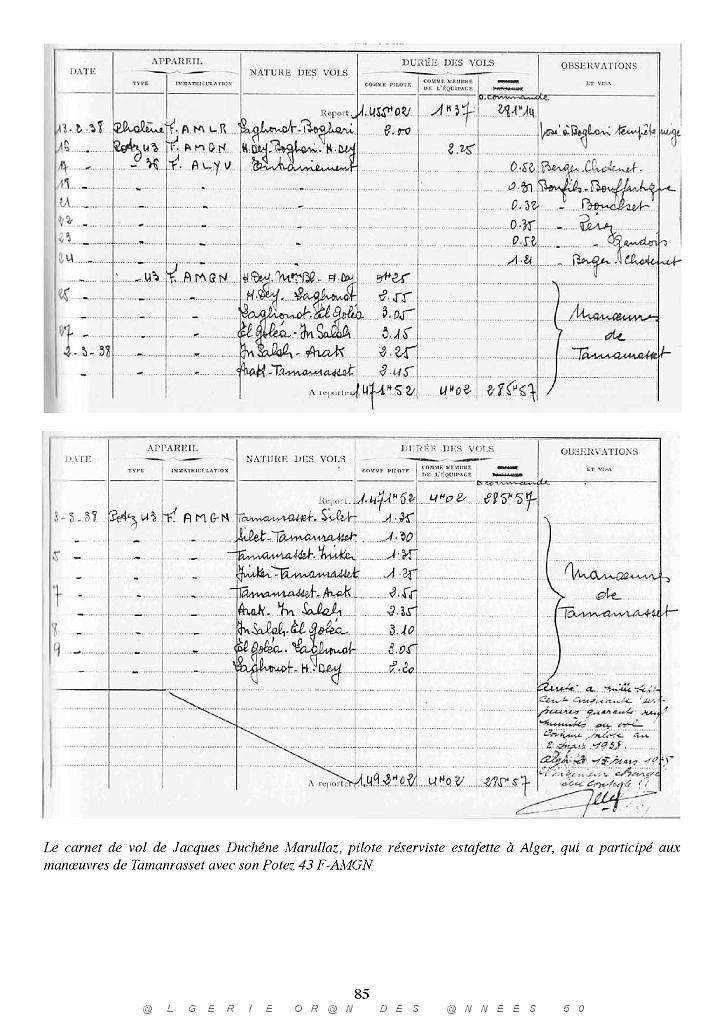 DATE APPAREIL NATURE DES VOLS DURÉE DES VOLS OBSERVATIONS
TYPE IMMATRICULATION COMME PILOTE COMME MEMBRE DE L'ÉQUIPAGE ET VISA
D. commande
Report. 1.455H02 1H37 281H14
13-2-38 Phalène F. AMLR Laghouat-Boghari 2.00 posé à Boghari tempête neige
16 Potez 43 F. AMGN H.Dey.Boghari.H.Dey 2.25
17 - 36 F. ALYU Entraînement 0.52 Berger-Chatenet.
19 - - - 0.31 Bonfils-Bouffartigue
21 - - - 0.32 - Bouchset
22 - - - 0.35 - Pérez
23 - - - 0.52 - Gaudois
24 - - - 1.21 - Berger-Chatenet
- 43 F. AMGN H.Dey Mon Bl. H.Dey 0H25
25 - - - H.Dey. Laghouat 2.55
- - - Laghouat-El Goléa 3.05 Manœuvres
27 - - - El Goléa-In Salah 3.15 de
2-3-38 - - In Salah-Arak 2.25 Tamanrasset
- - - Arak-Tamanrasset 2.45
A reporter 1471H52 4H02 285H57
DATE APPAREIL NATURE DES VOLS DURÉE DES VOLS OBSERVATIONS
TYPE IMMATRICULATION COMME PILOTE COMME MEMBRE DE L'ÉQUIPAGE ET VISA
D. commande
Report. 1.471H52 4H02 285H57
3-3-38 Potez 43 F. AMGN Tamanrasset-Silet 1.35
- - - Silet-Tamanrasset 1.30
5 - - - Tamanrasset-Iniker 1.35
- - - Iniker-Tamanrasset 1.25 Manœuvres
7 - - - Tamanrasset-Arak 2.55 de
- - - Arak-In Salah 2.35 Tamanrasset
8 - - - In Salah-El Goléa 3.10
9 - - - El Goléa-Laghouat 3.05
- - - Laghouat-H.Dey 2.20
Arrêté a mille
cent cinquante sept
heures quarante neuf
minutes de vol
comme pilote au
2 mars 1938.
Alger le 15 mars 1938
L'ingénieur chargé
du Contrôle
A reporter 1492H02 4H02 285H57
Le carnet de vol de Jacques Duchêne Marullaz, pilote réserviste estafette à Alger, qui a participé aux
manœuvres de Tamanrasset avec son Potez 43 F-AMGN
85
@ L G E R I E O R @ N D E S @ N N E E S 5 0